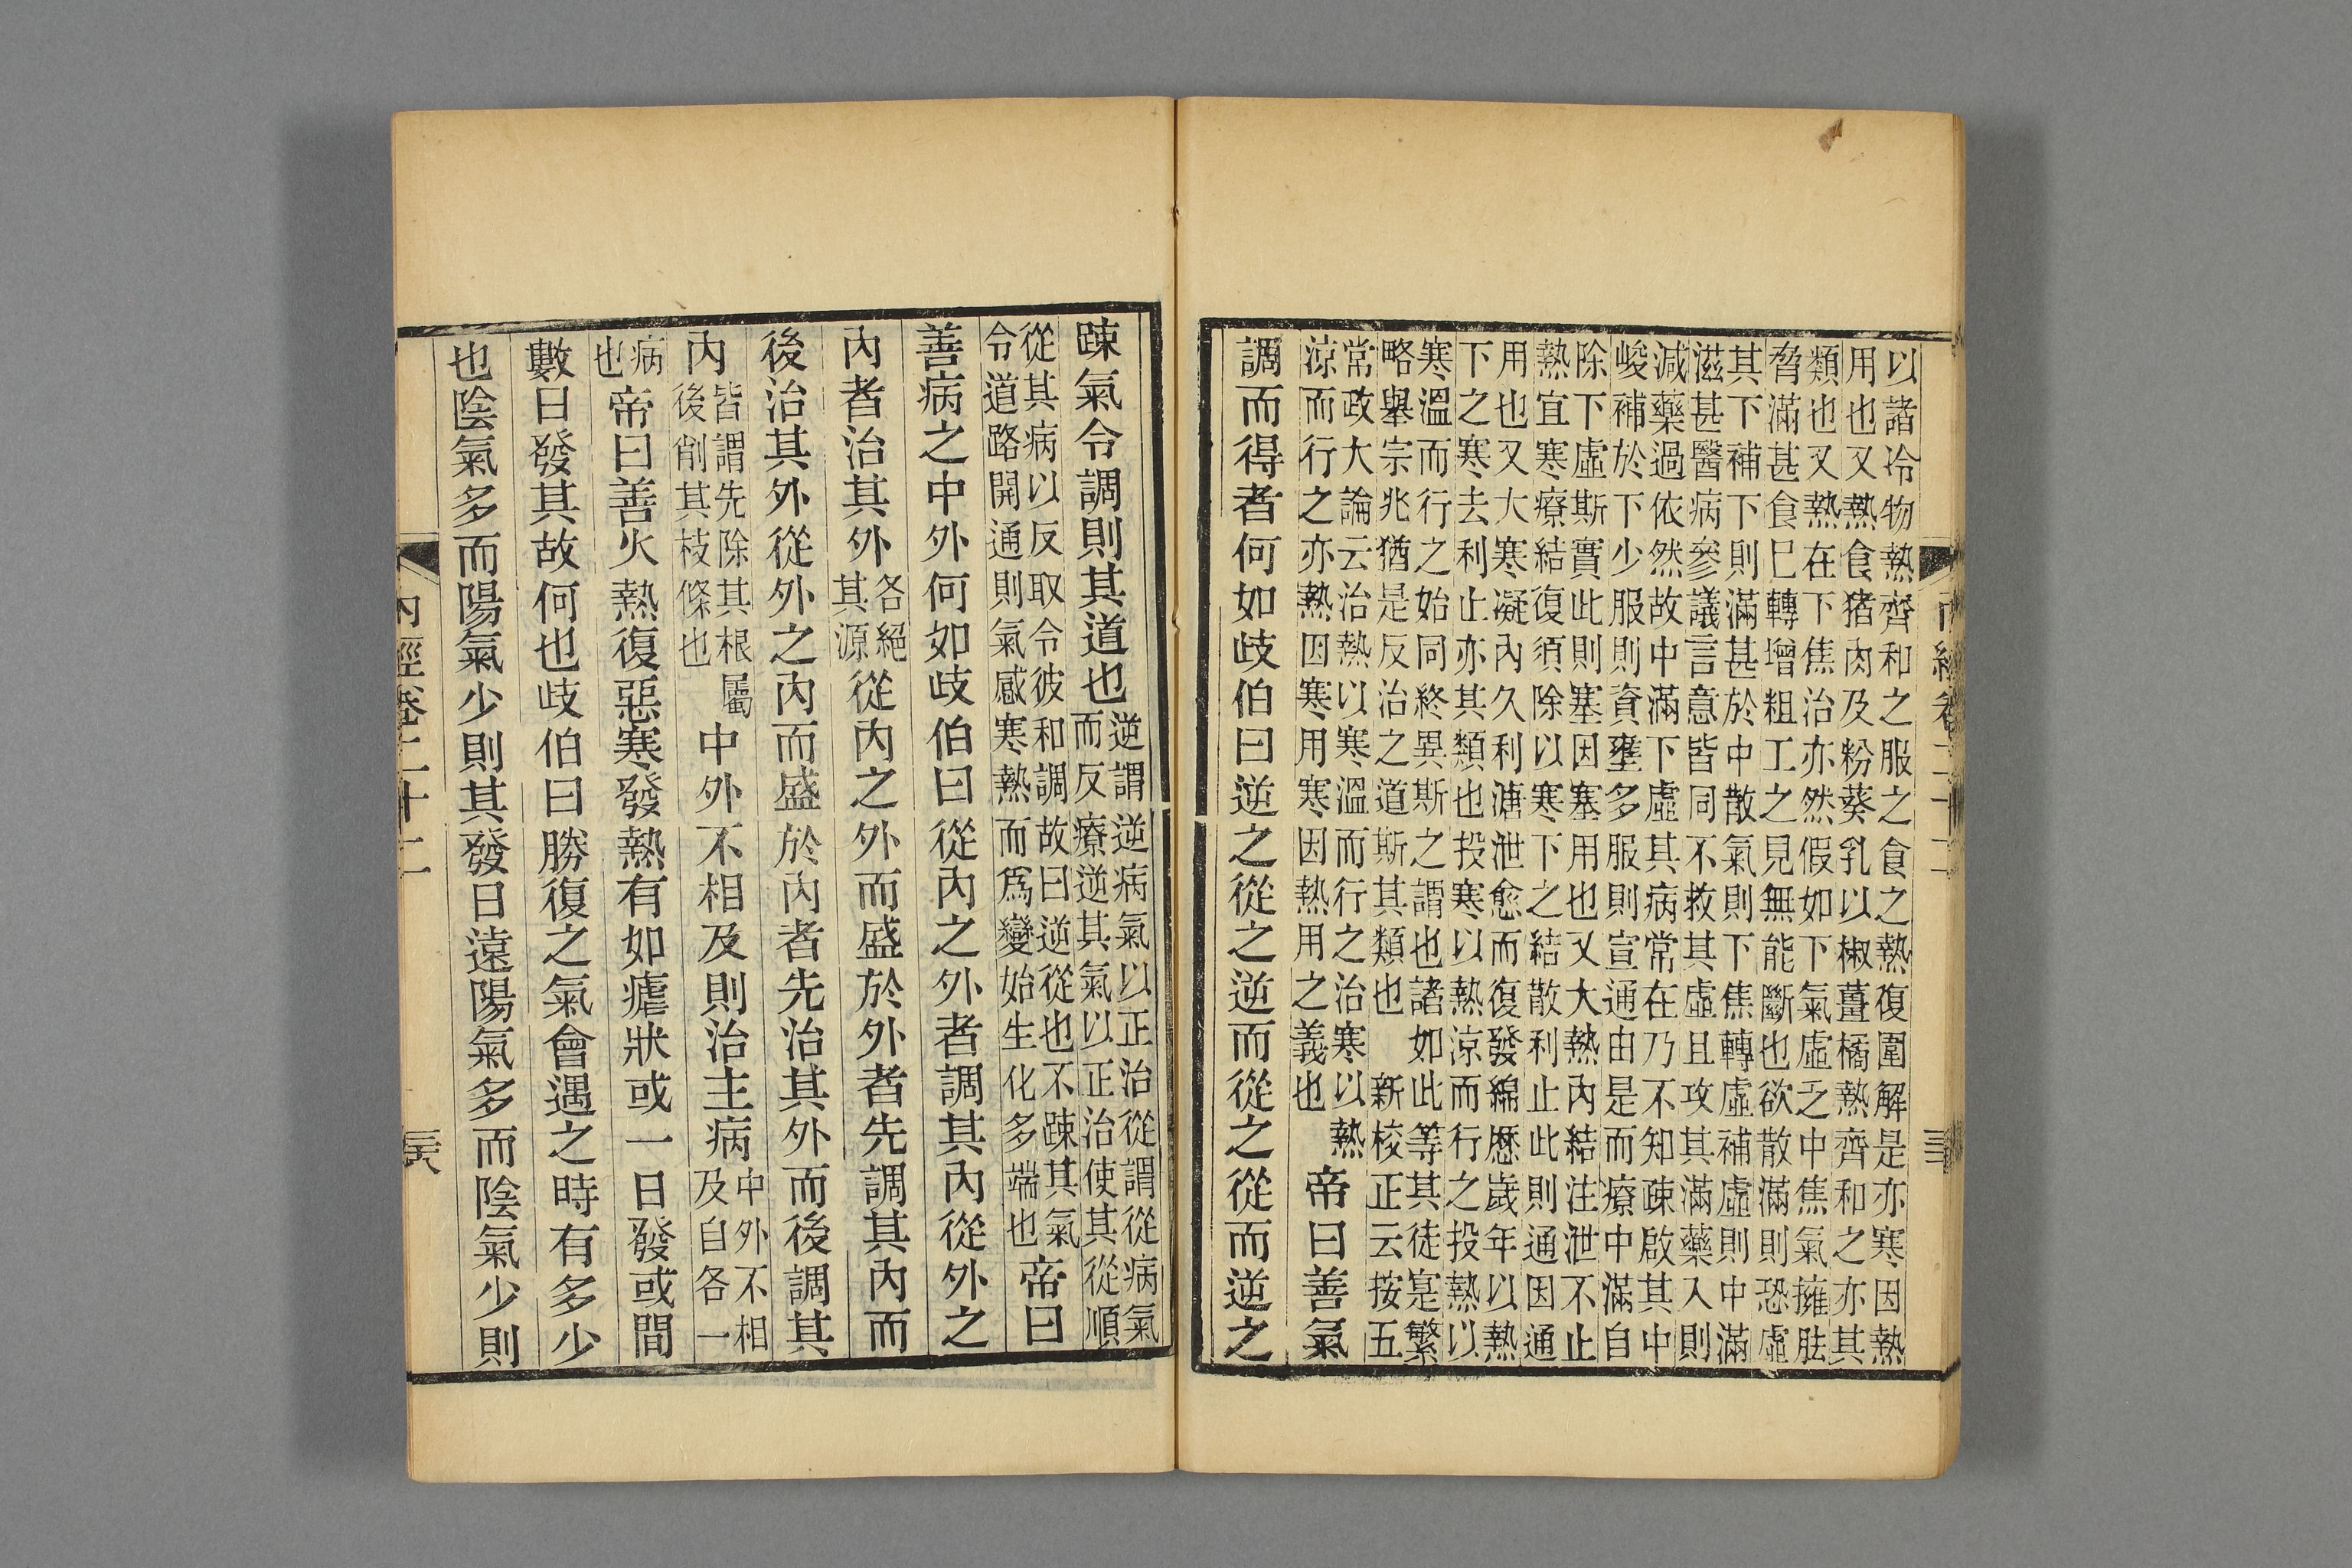 以諸冷物熱齊和之服之食之熱復圍解是亦寒因熱
用也又熱食猪肉及粉葵乳以椒薑橘熱齊和之亦其
類也又熱在下焦治亦然假如下氣虛乏中焦氣擁胠
脅滿甚食巳轉增粗工之見無能斷也欲散滿則恐虛
其下補下則滿甚於中散氣則下焦轉虛補虛則中滿
滋甚醫病參議言意皆同不救其虛且攻其滿藥入則
減藥過依然故中滿下虛其病常在乃不知疎啟其中
峻補於下少服則資壅多服則宣通由是而療中滿自
除下虛斯實此則塞因塞用也又大熱內結注泄不止
熱宜寒療結復須除以寒下之結散利止此則通因通
用也又大寒凝內久利溏泄愈而復發綿歷歲年以熱
下之寒去利止亦其類也投寒以熱涼而行之投熱以
寒溫而行之始同終異斯之謂也諸如此等其徒寔繁
略舉宗兆猶是反治之道斯其類也 新校正云按五
常政大論云治熱以寒溫而行之治寒以熱
涼而行之亦熱因寒用寒因熱用之義也
帝曰善氣
調而得者何如歧伯曰逆之從之逆而從之從而逆之
踈氣令調則其道也
逆謂逆病氣以正治從謂從病氣
而反療逆其氣以正治使其從順
從其病以反取令彼和調故曰逆從也不踈其氣
令道路開通則氣感寒熱而爲變始生化多端也
帝曰
善病之中外何如歧伯曰從內之外者調其內從外之
內者治其外
各絕
其源
從內之外而盛於外者先調其內而
後治其外從外之內而盛於內者先治其外而後調其
內
皆謂先除其根屬
後削其枝條也
中外不相及則治主病
中外不相
及自各一
病
也
帝曰善火熱復惡寒發熱有如瘧狀或一日發或間
數日發其故何也歧伯曰勝復之氣會遇之時有多少
也陰氣多而陽氣少則其發日遠陽氣多而陰氣少則
內經卷二十二